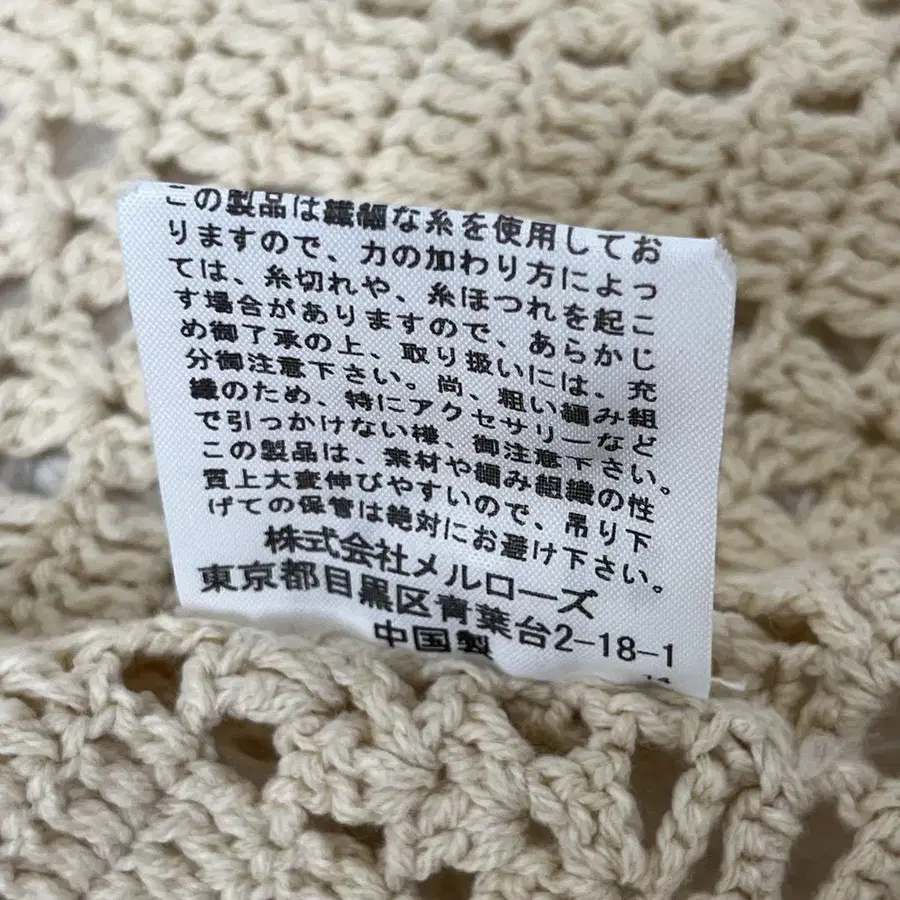 この製品は繊細な糸を使用してお
りますので、力の加わり方によっ
ては、糸切れや、糸ほつれを起こ
す場合がありますので、あらかじ
め御了承の上、取り扱いには、充
分御注意下さい。尚、粗い編み組
織のため、特にアクセサリーなど
で引っかけない様、御注意下さい。
この製品は、素材や編み組織の性
質上大変伸びやすいので、吊り下
げての保管は絶対にお避け下さい。
株式会社メルローズ
東京都目黒区青葉台2-18-1
中国製